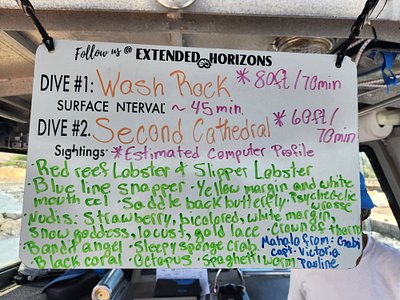 Follow us @ EXTENDED HORIZONS
DIVE #1: Wash Rock *80ft/70min
SURFACE INTERVAL ~ 45min
DIVE #2: Second Cathedral *60ft/
70min
Sightings: *Estimated Computer Profile
· Red reef Lobster & Slipper Lobster
· Blue line snapper · Yellow margin and white
mouth eel · Saddle back butterfly · Psychedelic
wrasse
Nudis: Strawberry, bicolored, white margin,
snow goddess, locust, gold lace · Crown of thorn
· Bandit angel · Sleepy sponge crab
· Black coral · Octopus · Spaghetti worm
Mahalo from: Gabi
Capt. Victoria
Pauline